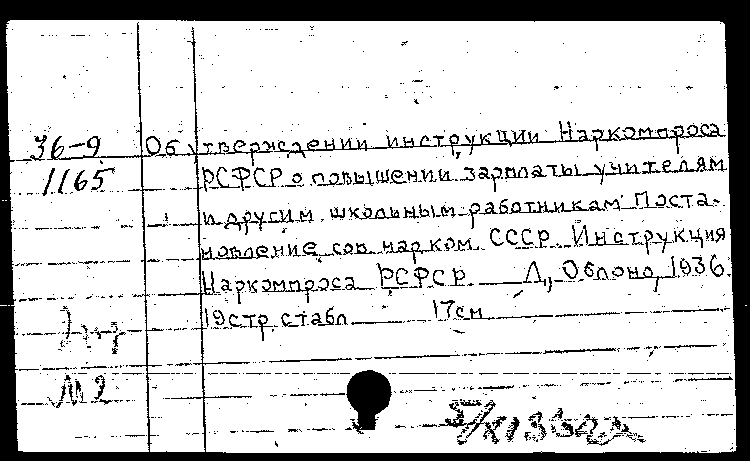 36-9 Об утверждении инструкции Наркомпроса
1165 РСФСР о повышении зарплаты учителям
и другим школьным работникам Поста-
новление сов. нарком. СССР. Инструкция
Наркомпроса РСФСР Л., Облоно, 1936.
19стр. с табл. 17см
М 2
5/XI 36